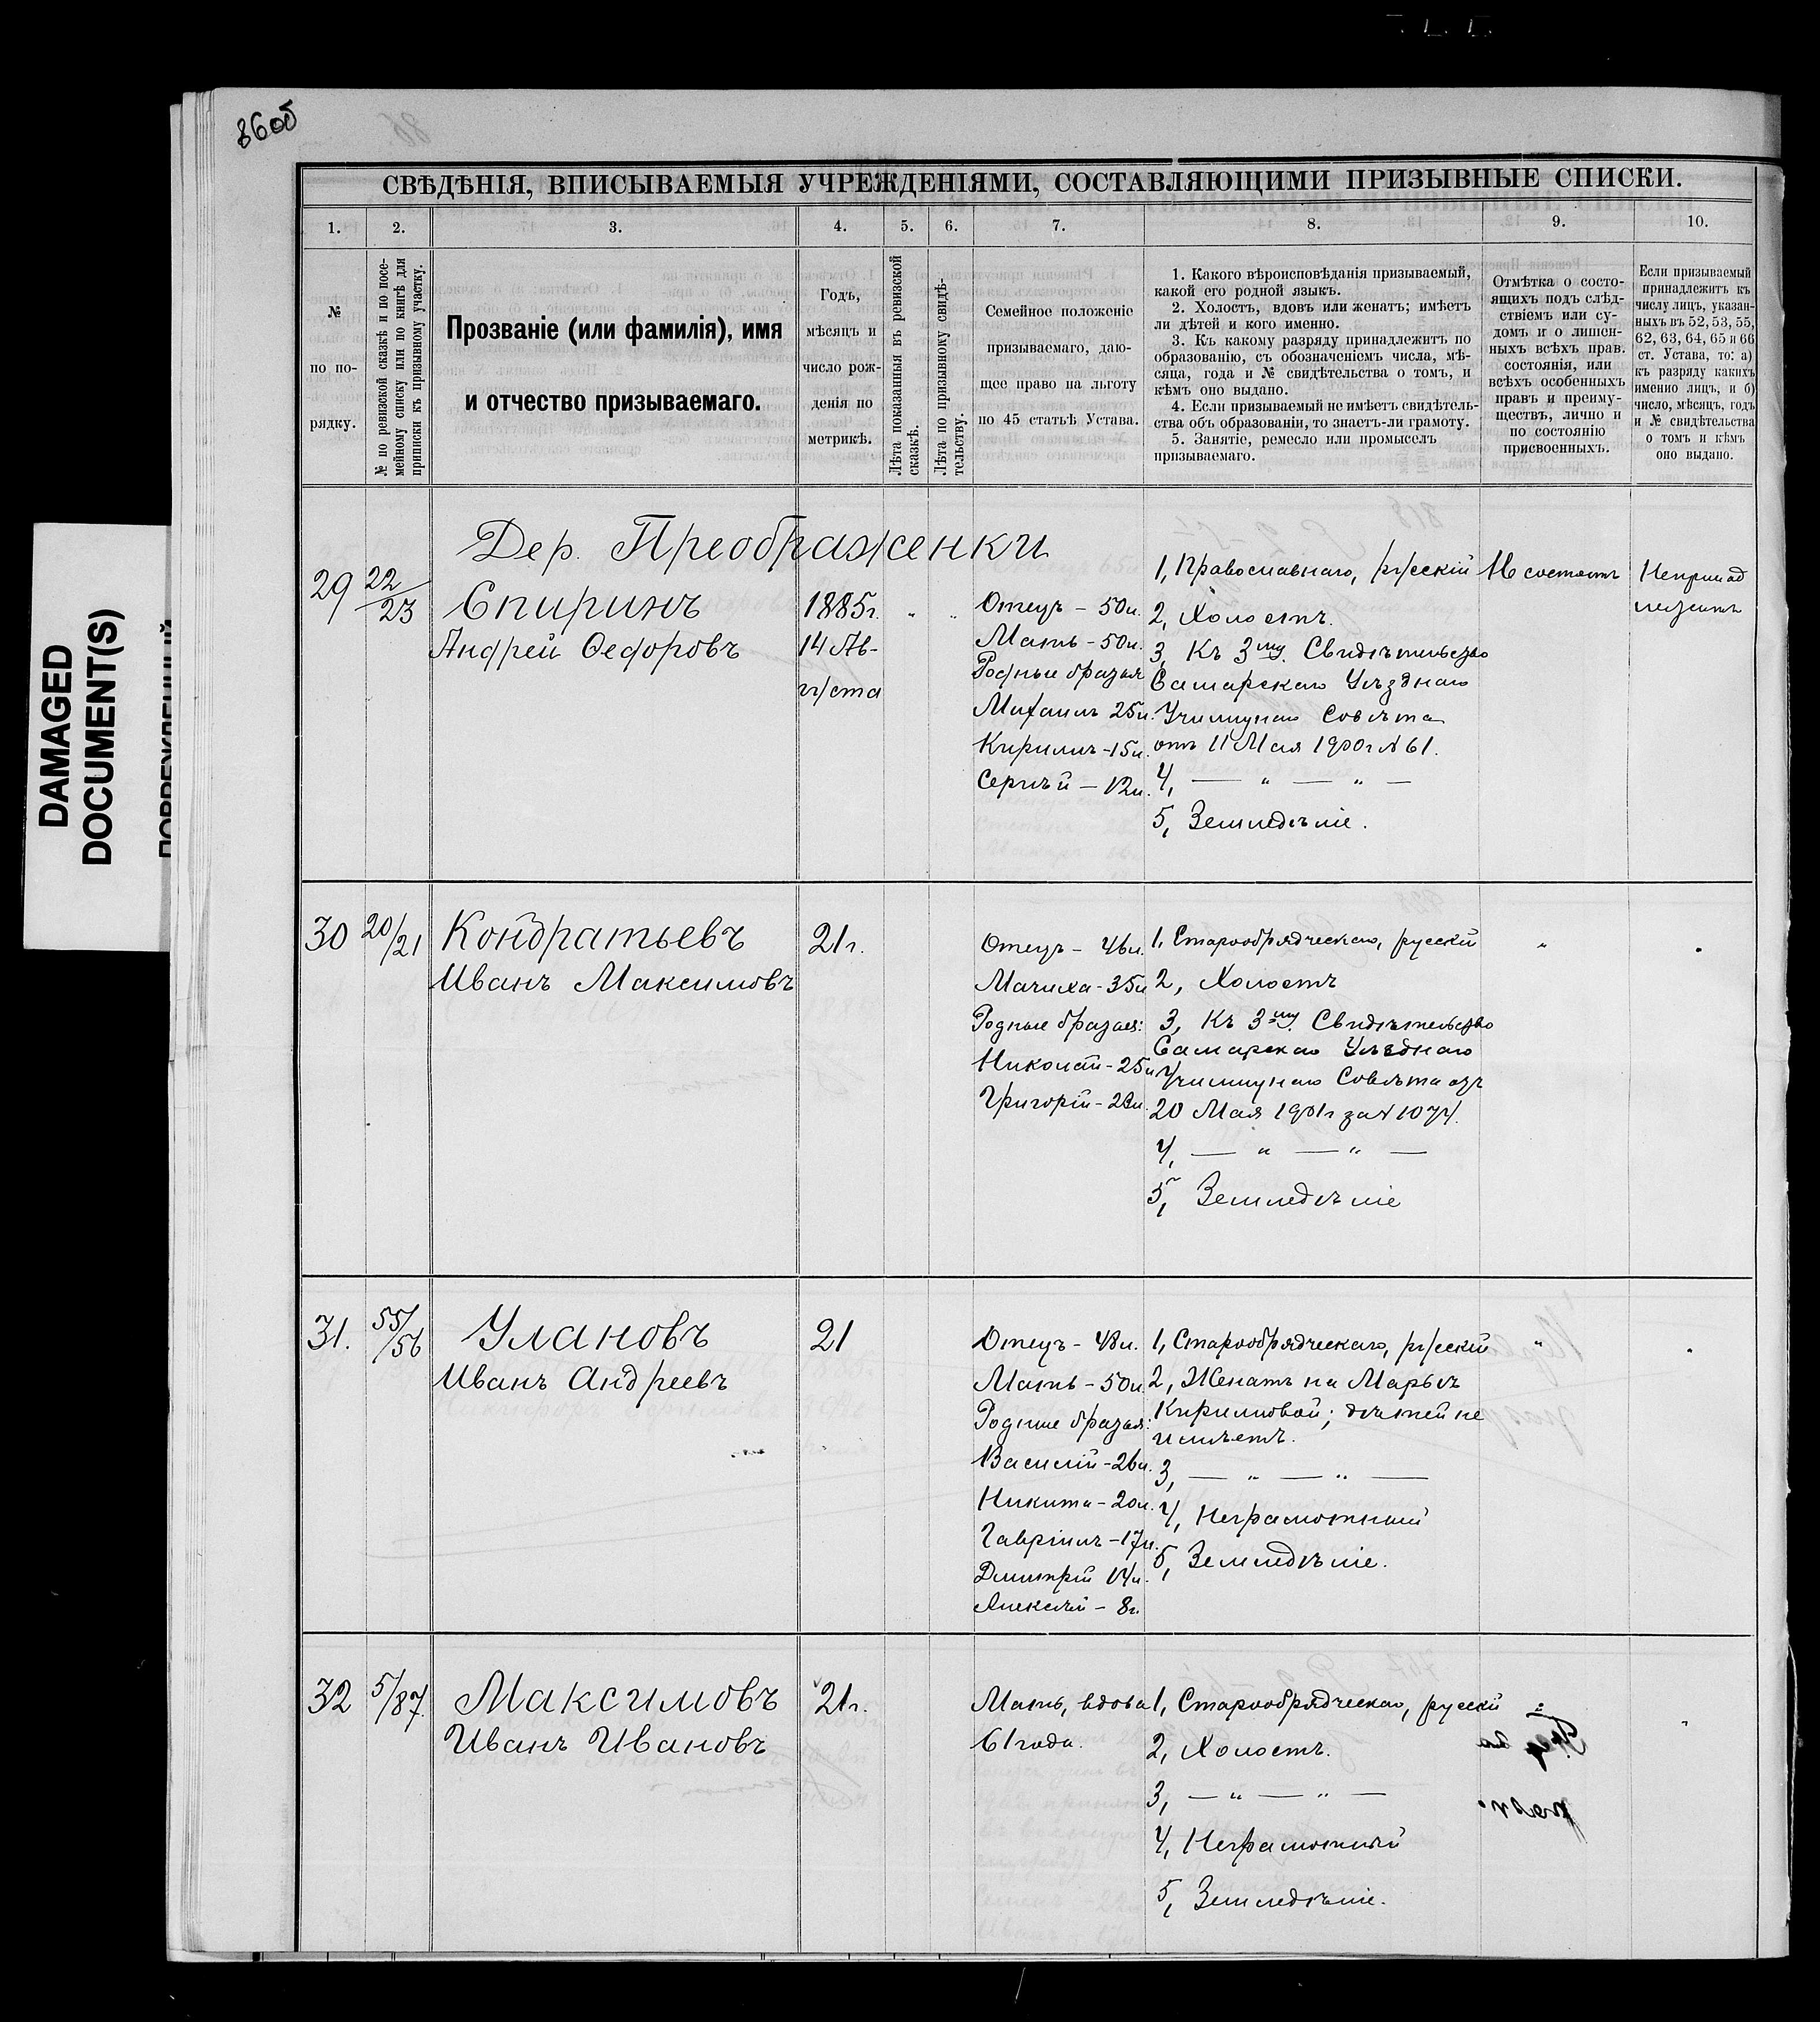 86об
СВѢДѢНІЯ, ВПИСЫВАЕМЫЯ УЧРЕЖДЕНІЯМИ, СОСТАВЛЯЮЩИМИ ПРИЗЫВНЫЕ СПИСКИ.
1. 2. 3. 4. 5. 6. 7. 8. 9. 10.
№
по по-
рядку.
№ по ревизской сказкѣ и по посе-
мейному списку или по книгѣ для
приписки къ призывному участку.
Прозваніе (или фамилія), имя
и отчество призываемаго.
Годъ,
мѣсяцъ и
число рож-
денія по
метрикѣ.
Лѣта показанныя въ ревизской
сказкѣ.
Лѣта по призывному свидѣ-
тельству.
Семейное положеніе
призываемаго, даю-
щее право на льготу
по 45 статьѣ Устава.
1. Какого вѣроисповѣданія призываемый,
какой его родной языкъ.
2. Холостъ, вдовъ или женатъ; имѣетъ
ли дѣтей и кого именно.
3. Къ какому разряду принадлежитъ по
образованію, съ обозначеніемъ числа, мѣ-
сяца, года и № свидѣтельства о томъ, и
кѣмъ оно выдано.
4. Если призываемый не имѣетъ свидѣтель-
ства объ образованіи, то знаетъ-ли грамоту.
5. Занятіе, ремесло или промыселъ
призываемаго.
Отмѣтка о состо-
ящихъ подъ слѣд-
ствіемъ или су-
домъ и о лишен-
ныхъ всѣхъ прав.
состоянія, или
всѣхъ особенныхъ
правъ и преиму-
ществъ, лично и
по состоянію
присвоенныхъ.
Если призываемый
принадлежитъ къ
числу лицъ, указан-
ныхъ въ 52, 53, 55,
62, 63, 64, 65 и 66
ст. Устава, то: а)
къ разряду какихъ
именно лицъ, и б)
число, мѣсяцъ, годъ
и № свидѣтельства
о томъ и кѣмъ
оно выдано.
Дер. Преображенки
29
22/23
Спиринъ
Андрей Ѳедоровъ
1885г.
14 Ав-
густа
" "
Отецъ - 50л.
Мать - 50л.
Родные братья
Михаилъ 25л.
Кирилъ - 15л.
Сергѣй - 12л.
1, Православнаго, русскій
2, Холостъ.
3, Къ 3му. Свидѣтельство
Самарскаго Уѣзднаго
Училищнаго Совѣта
отъ 11 Мая 1900г № 61.
4, — " — " —
5, Земледѣліе.
Не состоитъ
Непринад
лежитъ
30
20/21
Кондратьевъ
Иванъ Максимовъ
21г.
Отецъ - 46л.
Мачиха - 35л
Родные братья:
Николай - 25л
Григорій - 23л.
1, Старообрядческаго, русскій
2, Холостъ
3, Къ 3му. Свидѣтельство
Самарскаго Уѣзднаго
Училищнаго Совѣта отъ
20 Мая 1901г за № 1074.
4, — " — " —
5, Земледѣліе
"
31.
55/56
Улановъ
Иванъ Андреевъ
21
Отецъ - 48л.
Мать - 50л.
Родные братья:
Василій - 26л.
Никита - 20л.
Гавріилъ - 17л.
Дмитрій 14л.
Алексѣй - 8л.
1, Старообрядческаго, русскій
2, Женатъ на Марьѣ
Кириловой; дѣтей не
имѣетъ.
3, — " — " —
4, Неграмотный
5, Земледѣліе.
"
32
5/87.
Максимовъ
Иванъ Ивановъ
21г.
Мать, вдова
61 года.
1, Старообрядческаго, русскій
2, Холостъ.
3, — " — " —
4, Неграмотный
5, Земледѣліе.
"
DAMAGED
DOCUMENT(S)